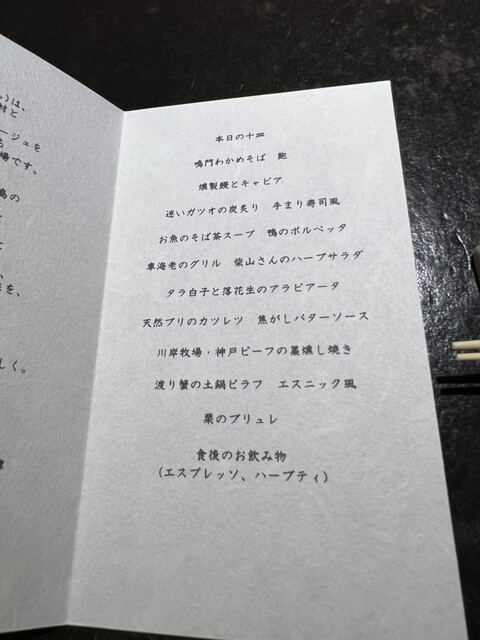 )は、
材と
ージュを
場です。
鳥の
を、
しく。
本日の十皿
鳴門わかめそば　鮑
燻製鰻とキャビア
迷いガツオの炭炙り　手まり寿司風
お魚のそば茶スープ　鴨のポルペッタ
車海老のグリル　柴山さんのハーブサラダ
タラ白子と落花生のアラビアータ
天然ブリのカツレツ　焦がしバターソース
川岸牧場・神戸ビーフの藁燻し焼き
渡り蟹の土鍋ピラフ　エスニック風
栗のブリュレ
食後のお飲み物
(エスプレッソ、ハーブティ)